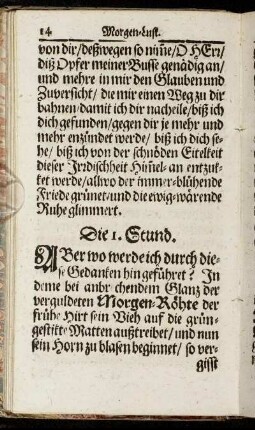 14 Morgen-Lust.
von dir/ deßwegen so nim̃e/ O HErr/
diß Opfer meiner Busse genädig an/
und mehre in mir den Glauben und
Zuversicht/ die mir einen Weg zu dir
bahnen/ damit ich dir nacheile/ biß ich
dich gefunden/ gegen dir je mehr und
mehr enzündet werde/ biß ich dich se-
he/ biß ich von der schnöden Eitelkeit
dieser Irrdischheit Him̃el-an entzuk-
ket werde/ allwo der immer-blühende
Friede grünet/ und die ewig-wärende
Ruhe glimmert.
Die 1. Stund.
ABer wo werde ich durch die-
se Gedanken hin geführet? In
deme bei anbrechendem Glanz der
verguldeten Morgen-Röhte der
frühe Hirt sein Vieh auf die grün-
gestikte Matten außtreibet/ und nun
sein Horn zu blasen beginnet/ so ver-
gisst